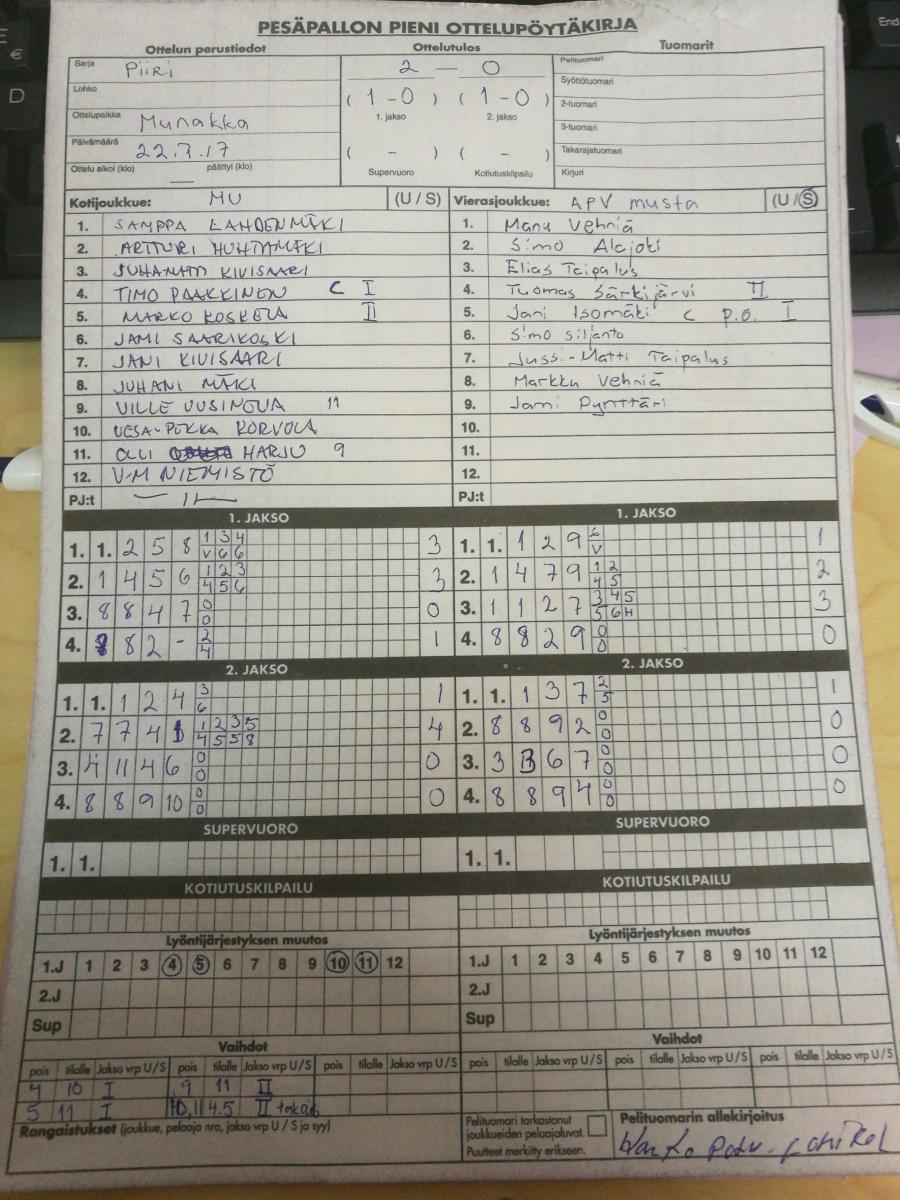 PESÄPALLON PIENI OTTELUPÖYTÄKIRJA
Ottelun perustiedot
Ottelutulos
Tuomarit
Sarja Piiri
Lohko
Ottelupaikka Munakka
Päivämäärä 22.7.17
Ottelu alkoi (klo) — päättyi (klo)
2 — 0
( 1 - 0 ) ( 1 - 0 )
1. jakso 2. jakso
( - ) ( - )
Supervuoro Kotiutuskilpailu
Pelituomari
Syöttötuomari
2-tuomari
3-tuomari
Takarajatuomari
Kirjuri
Kotijoukkue: MU (U / S)
1. SAMPPA LAHDENMÄKI
2. ARTTURI HUHTAMÄKI
3. JUHAMATTI KIVISAARI
4. TIMO PAAKKINEN C I
5. MARKO KOSKELA II
6. JAMI SAARIKOSKI
7. JANI KIVISAARI
8. JUHANI MÄKI
9. VILLE UUSINOUA 11
10. VESA-PEKKA KORVOLA
11. OLLI HARJU 9
12. V-M NIEMISTÖ
PJ:t — 11 —
Vierasjoukkue: APV musta (U / S)
1. Manu Vehniä
2. Simo Alajoki
3. Elias Taipalus
4. Tuomas Särkijärvi II
5. Jani Isomäki C P.O. I
6. Simo Siljanto
7. Jussi-Matti Taipalus
8. Markku Vehniä
9. Jami Pynttäri
10.
11.
12.
PJ:t
1. JAKSO
1. 1. 2 5 8 1 3 4 3
V 6 6
2. 1 4 5 6 1 2 3 3
4 5 6
3. 8 8 4 7 0 0
0
4. 8 8 2 - 2 1
4
1. JAKSO
1. 1. 1 2 9 6 1
V
2. 1 4 7 9 1 2 2
4 5
3. 1 1 2 7 3 4 5 3
5 6 H
4. 8 8 2 9 0 0
0
2. JAKSO
1. 1. 1 2 4 3 1
6
2. 7 7 4 1 1 2 3 5 4
4 5 5 8
3. 4 11 4 6 0 0
0
4. 8 8 9 10 0 0
0
2. JAKSO
1. 1. 1 3 7 2 1
5
2. 8 8 9 2 0 0
0
3. 3 3 6 7 0 0
0
4. 8 8 9 4 0 0
0
SUPERVUORO
1. 1.
SUPERVUORO
1. 1.
KOTIUTUSKILPAILU
KOTIUTUSKILPAILU
Lyöntijärjestyksen muutos
1.J 1 2 3 4 5 6 7 8 9 10 11 12
2.J
Sup
Lyöntijärjestyksen muutos
1.J 1 2 3 4 5 6 7 8 9 10 11 12
2.J
Sup
Vaihdot
pois tilalle Jakso vrp U / S pois tilalle Jakso vrp U / S pois tilalle Jakso vrp U / S
4 10 I 9 11 II
5 11 I 10,11 4.5 II
Vaihdot
pois tilalle Jakso vrp U / S pois tilalle Jakso vrp U / S pois tilalle Jakso vrp U / S
Rangaistukset (joukkue, pelaaja nro, jakso vrp U / S ja syy)
Pelituomari tarkastanut
joukkueiden pelaajaluvat.
Puutteet merkitty erikseen.
Pelituomarin allekirjoitus